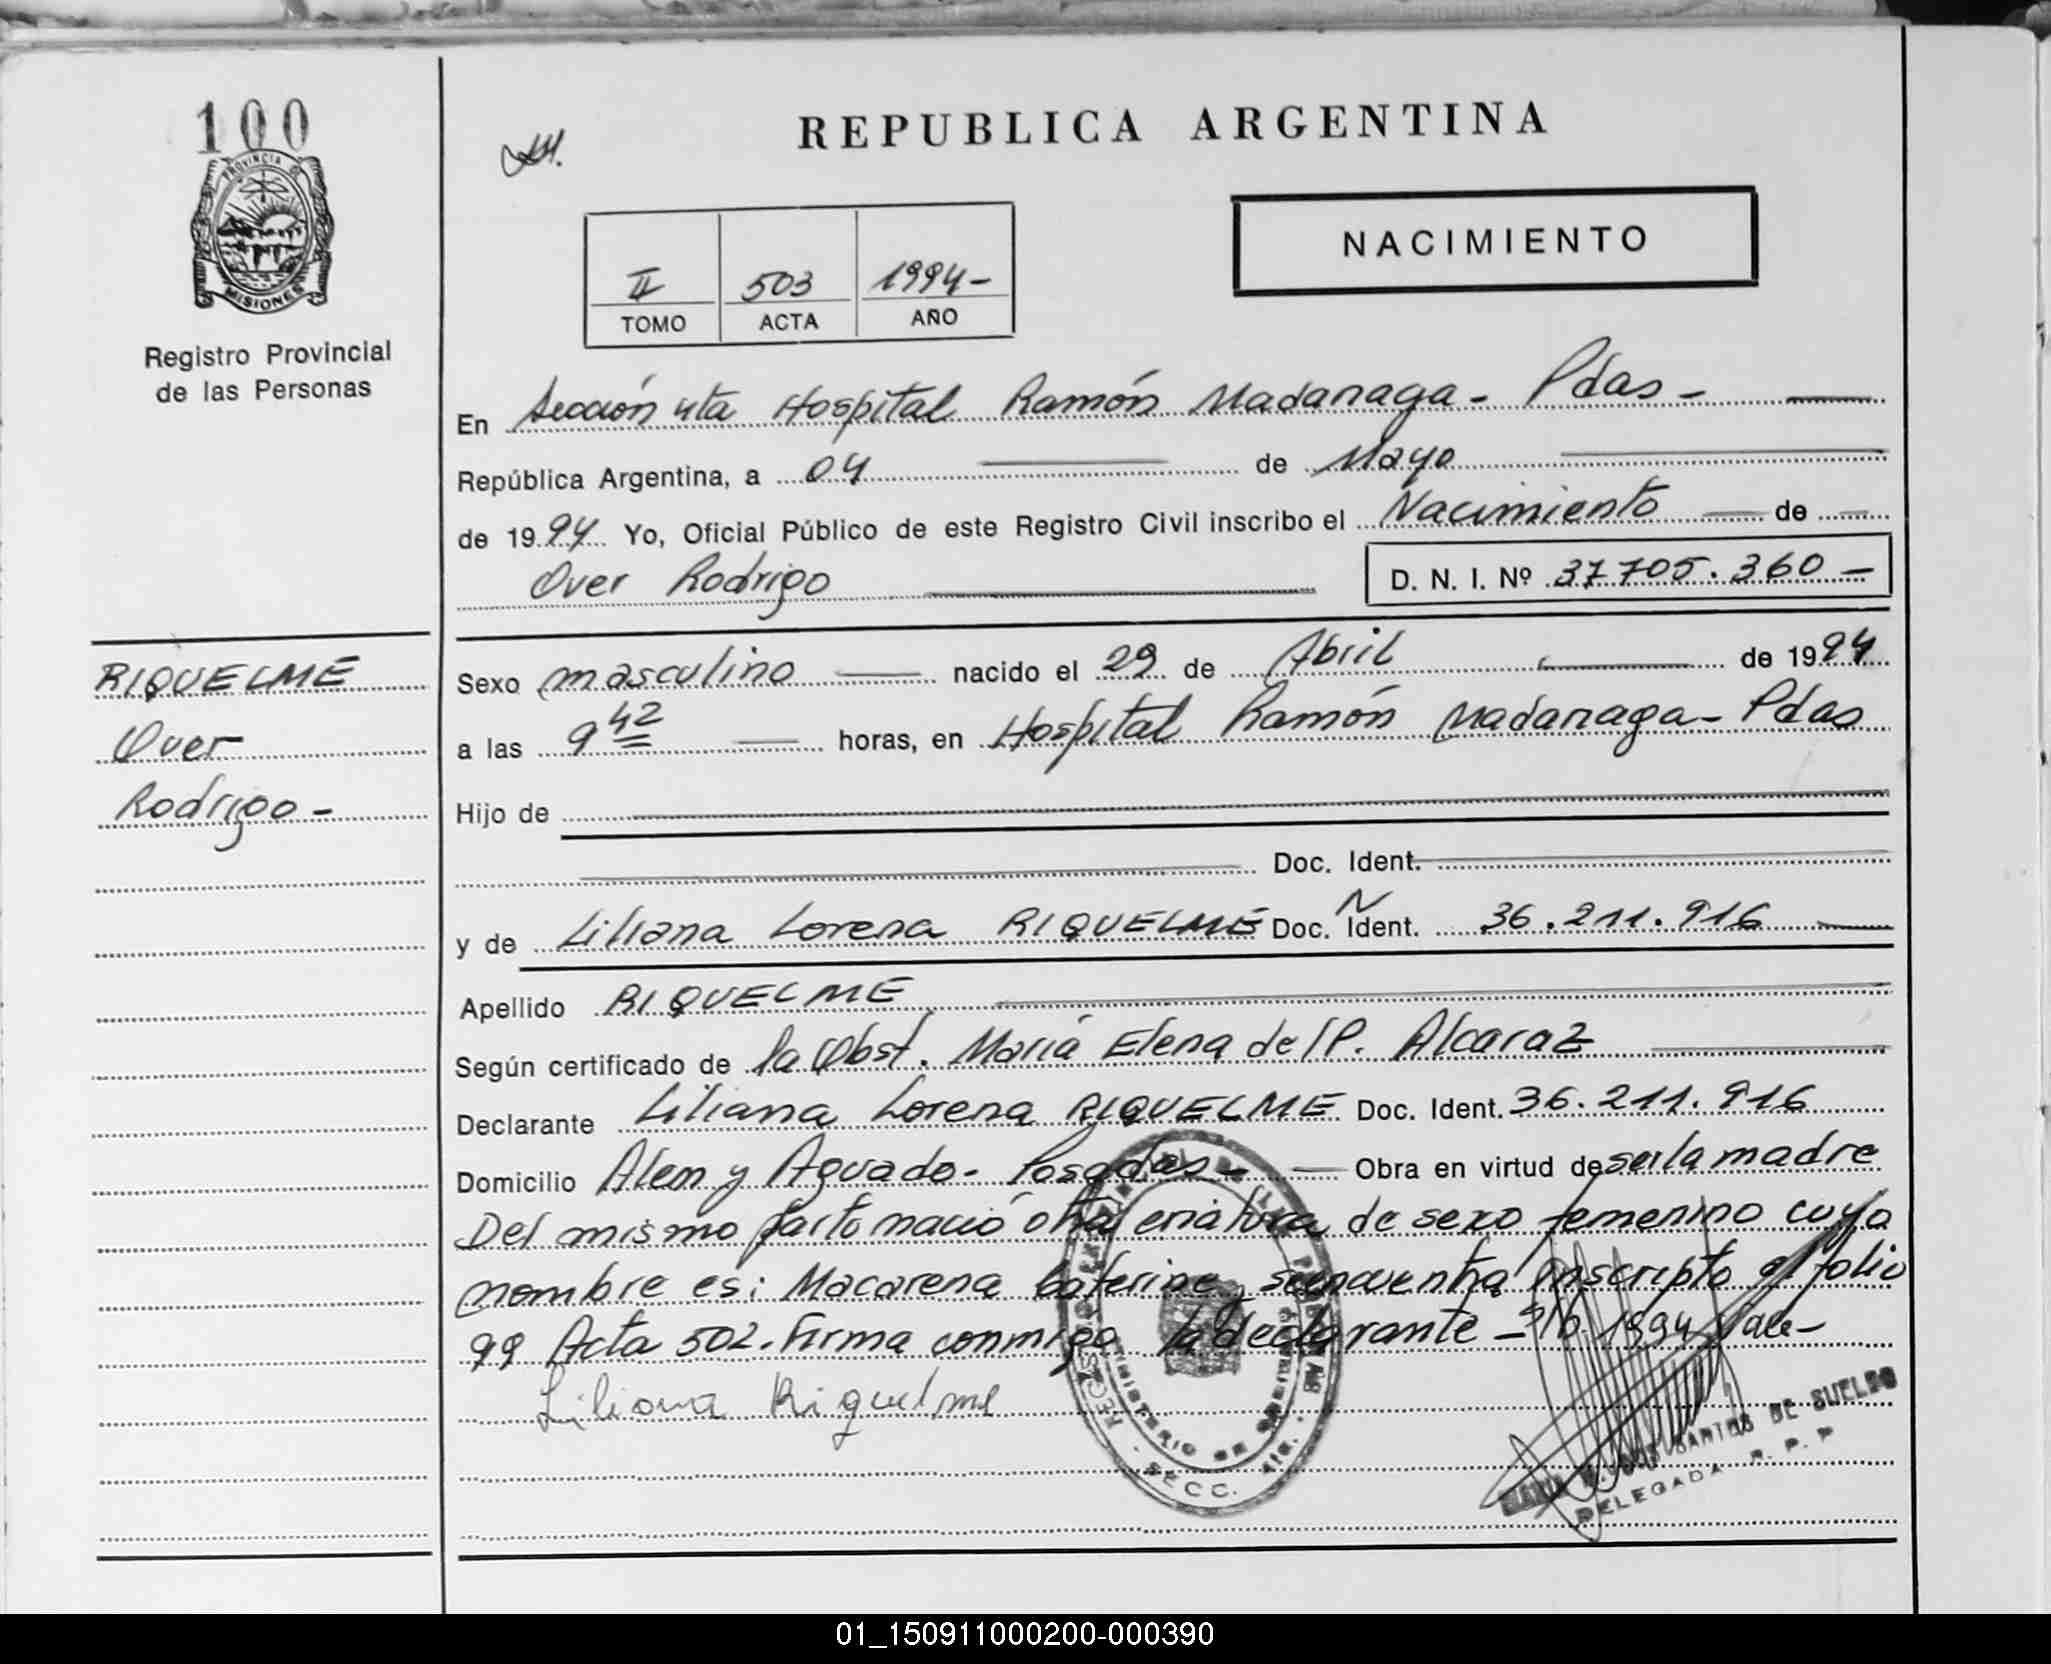 100
PROVINCIA DE
MISIONES
Registro Provincial
de las Personas
REPUBLICA ARGENTINA
NACIMIENTO
II 503 1994-
TOMO ACTA AÑO
En Sección 4ta Hospital Ramón Madariaga - Pdas -
República Argentina, a 04 de Mayo
de 1994 Yo, Oficial Público de este Registro Civil inscribo el Nacimiento de
Over Rodrigo D. N. I. Nº 37705.360 -
RIQUELME
Over
Rodrigo -
Sexo masculino nacido el 29 de Abril de 1994
a las 9 42 horas, en Hospital Ramón Madariaga - Pdas
Hijo de
Doc. Ident.
y de Liliana Lorena RIQUELME Doc. Ident. N 36.211.916
Apellido RIQUELME
Según certificado de la Obst. María Elena del P. Alcaraz
Declarante Liliana Lorena RIQUELME Doc. Ident. 36.211.916
Domicilio Alem y Aguado - Posadas - Obra en virtud de ser la madre
Del mismo parto nació otra criatura de sexo femenino cuyo
nombre es: Macarena Caterine, se encuentra inscripto al folio
99 Acta 502. Firma conmigo la declarante - 1994 Vale -
Liliana Riquelme
MINISTERIO DE
SECC.
SANTOS DE SUELDO
DELEGADA R. P. P
01_150911000200-000390